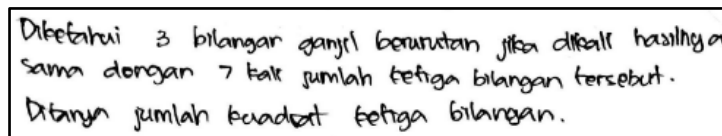 Diketahui 3 bilangan ganjil berurutan jika dikali hasilnya
sama dengan 7 kali jumlah ketiga bilangan tersebut.
Ditanya jumlah kuadrat ketiga bilangan.